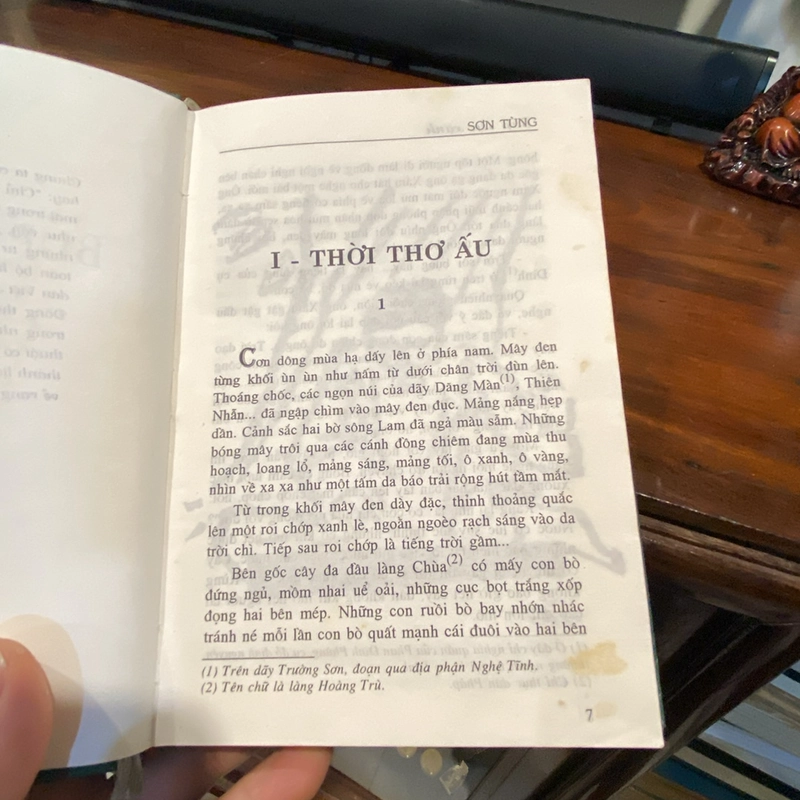 SƠN TÙNG
I - THỜI THƠ ẤU
1
Cơn dông mùa hạ dấy lên ở phía nam. Mây đen
từng khối ùn ùn như nấm từ dưới chân trời đùn lên.
Thoáng chốc, các ngọn núi của dãy Dăng Màn(1), Thiên
Nhẫn... đã ngập chìm vào mây đen đục. Mảng nắng hẹp
dần. Cảnh sắc hai bờ sông Lam đã ngả màu sẫm. Những
bóng mây trôi qua các cánh đồng chiêm đang mùa thu
hoạch, loang lổ, mảng sáng, mảng tối, ô xanh, ô vàng,
nhìn về xa xa như một tấm da báo trải rộng hút tầm mắt.
Từ trong khối mây đen dày đặc, thỉnh thoảng quắc
lên một roi chớp xanh lè, ngoằn ngoèo rạch sáng vào da
trời chì. Tiếp sau roi chớp là tiếng trời gầm...
Bên gốc cây đa đầu làng Chùa(2) có mấy con bò
đứng ngủ, mồm nhai uể oải, những cục bọt trắng xốp
đọng hai bên mép. Những con ruồi bò bay nhớn nhác
tránh né mỗi lần con bò quất mạnh cái đuôi vào hai bên
(1) Trên dãy Trường Sơn, đoạn qua địa phận Nghệ Tĩnh.
(2) Tên chữ là làng Hoàng Trù.
7